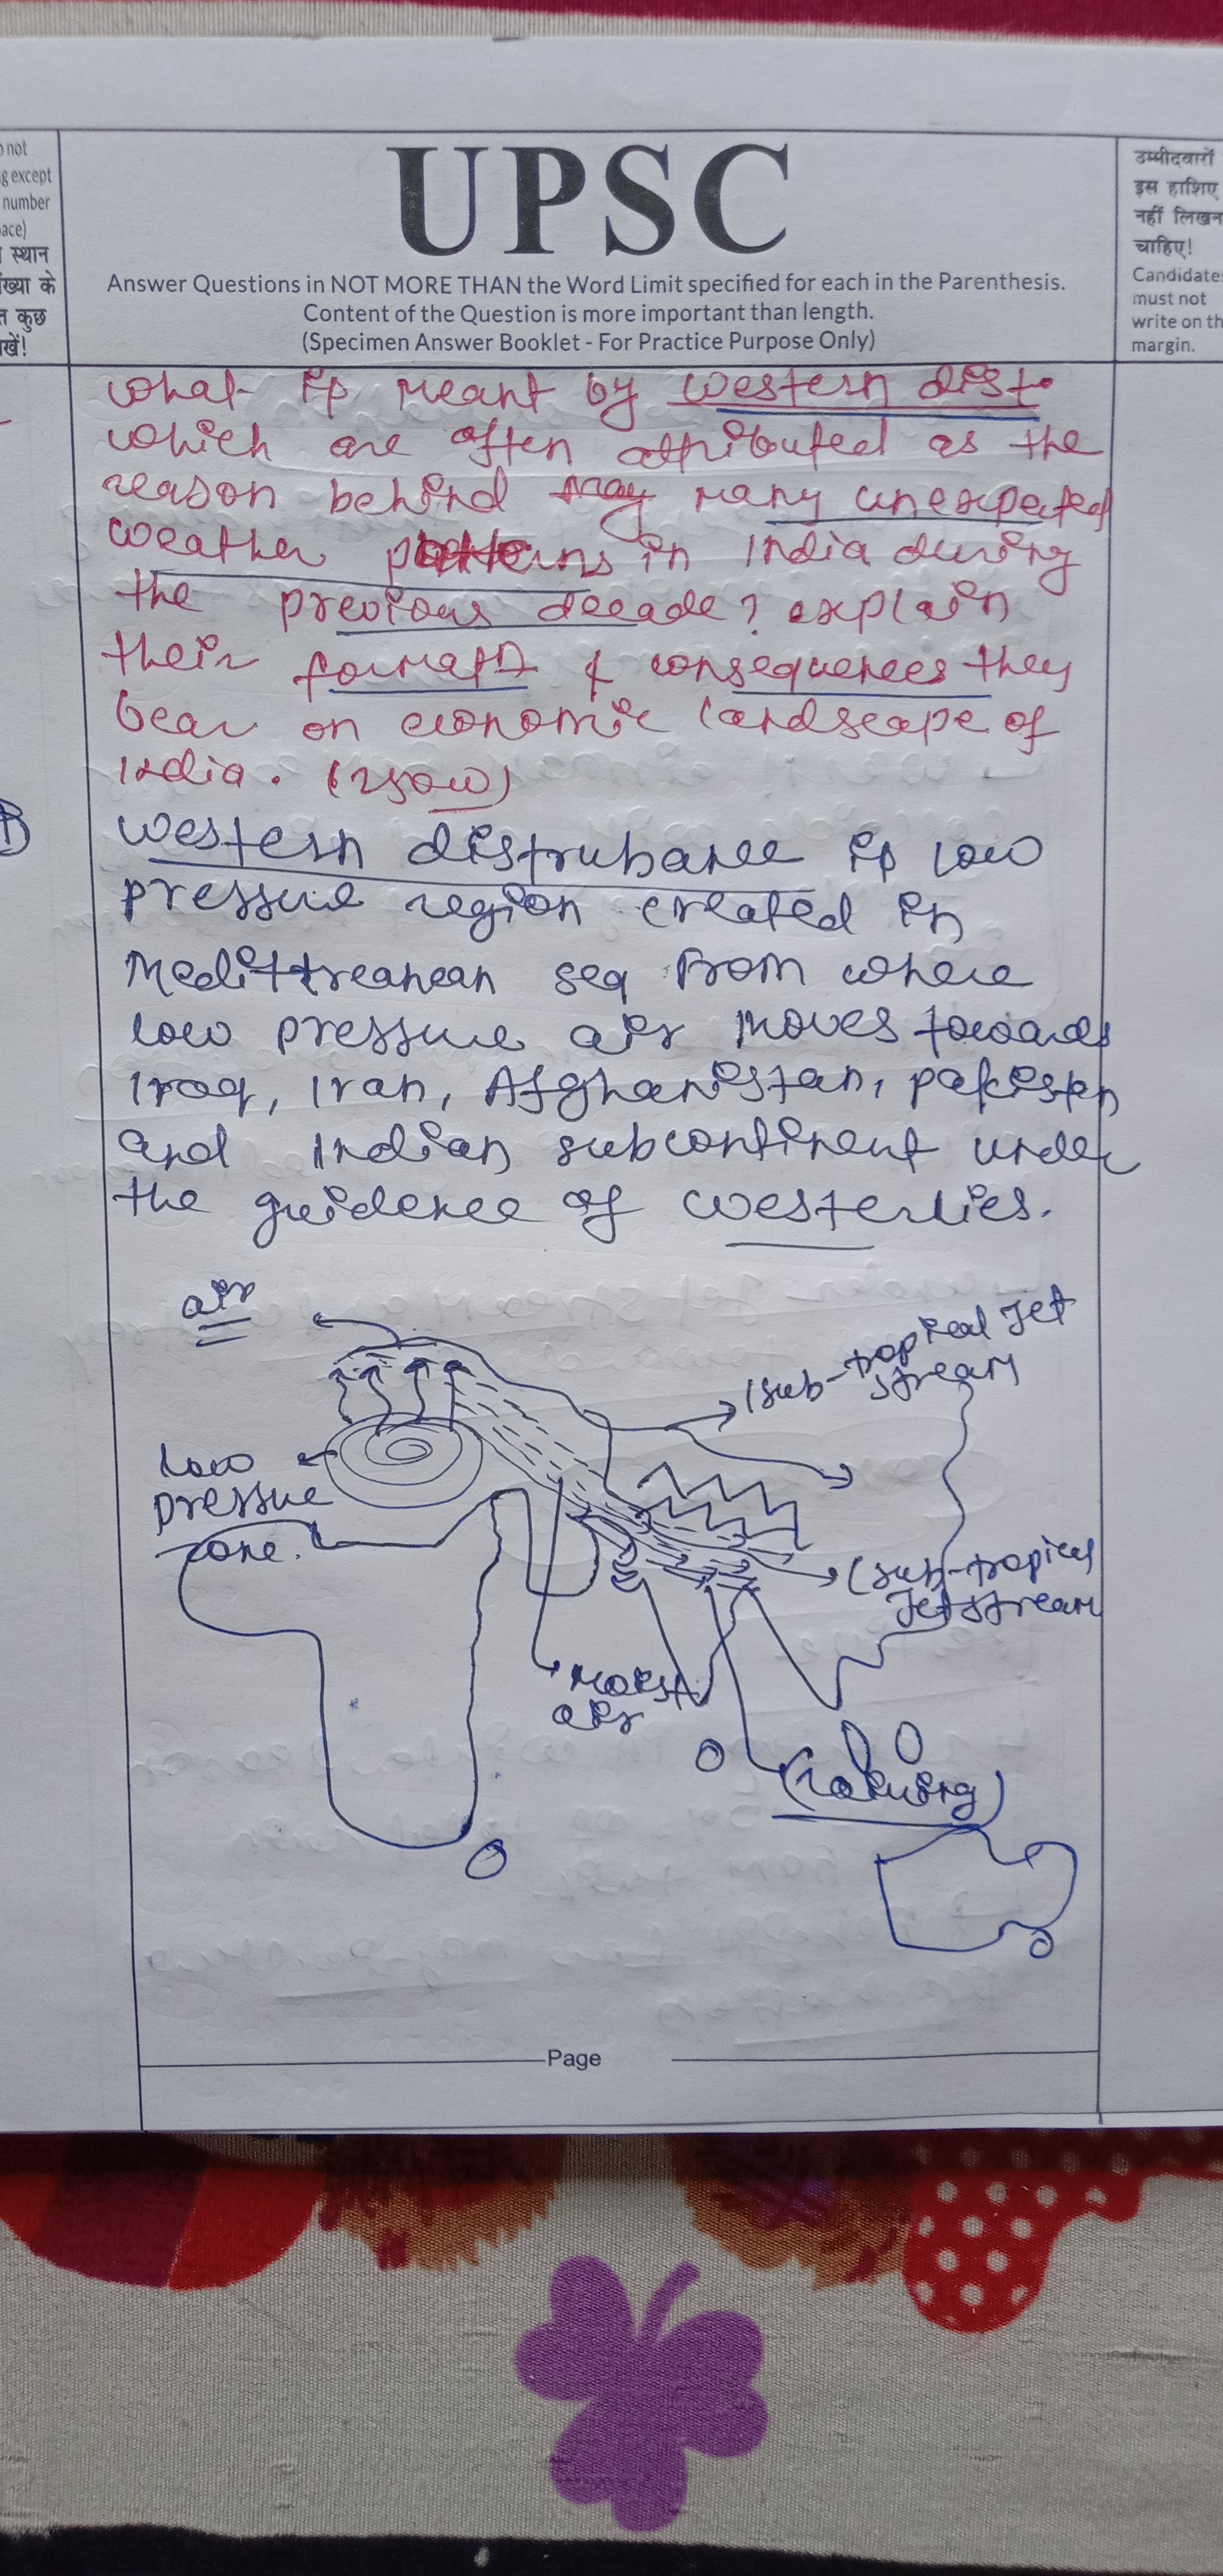 o not
g except
number
ace)
स्थान
ंख्या के
त कुछ
खें!
UPSC
Answer Questions in NOT MORE THAN the Word Limit specified for each in the Parenthesis.
Content of the Question is more important than length.
(Specimen Answer Booklet - For Practice Purpose Only)
उम्मीदवारों
इस हाशिए
नहीं लिखन
चाहिए!
Candidates
must not
write on th
margin.
what is meant by western dist.
which are often attributed as the
reason behind many unexpected
weather patterns in India during
the previous decade? explain
their formatn & consequences they
bear on economic landscape of
India. (250w)
western distrubance is low
pressure region created in
Medittreanean sea from where
low pressure air moves towards
Iraq, Iran, Afghanistan, pakistan
and Indian subcontinent under
the guidence of westerlies.
air
(sub-tropical Jet
stream
low
pressure
zone.
(sub-tropical
Jetstream
moist
air
Page